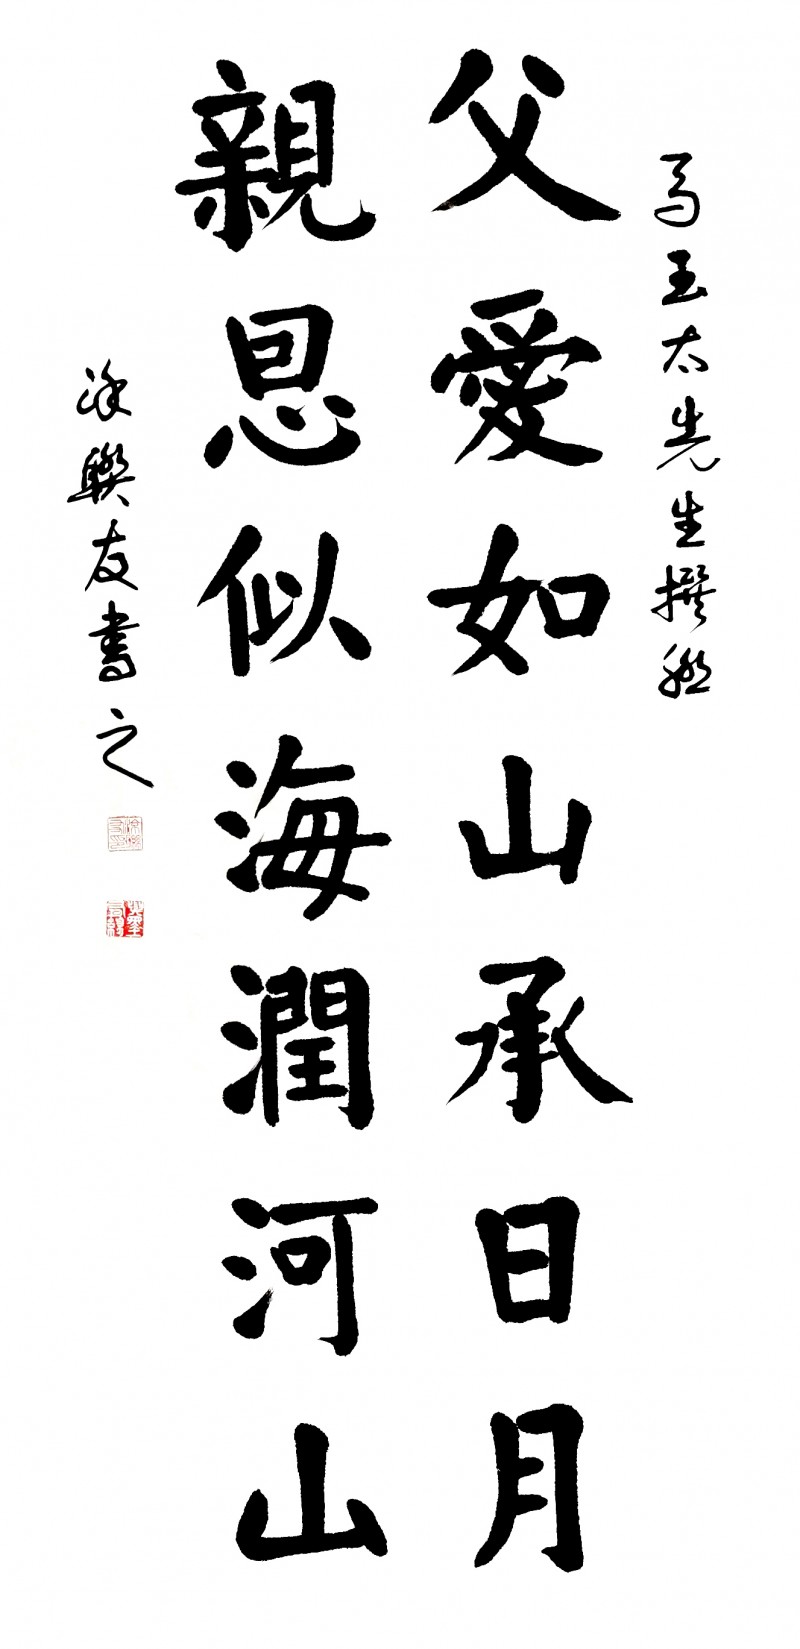 馬玉太先生撰聯
父愛如山承日月
親恩似海潤河山
涂聯友書之